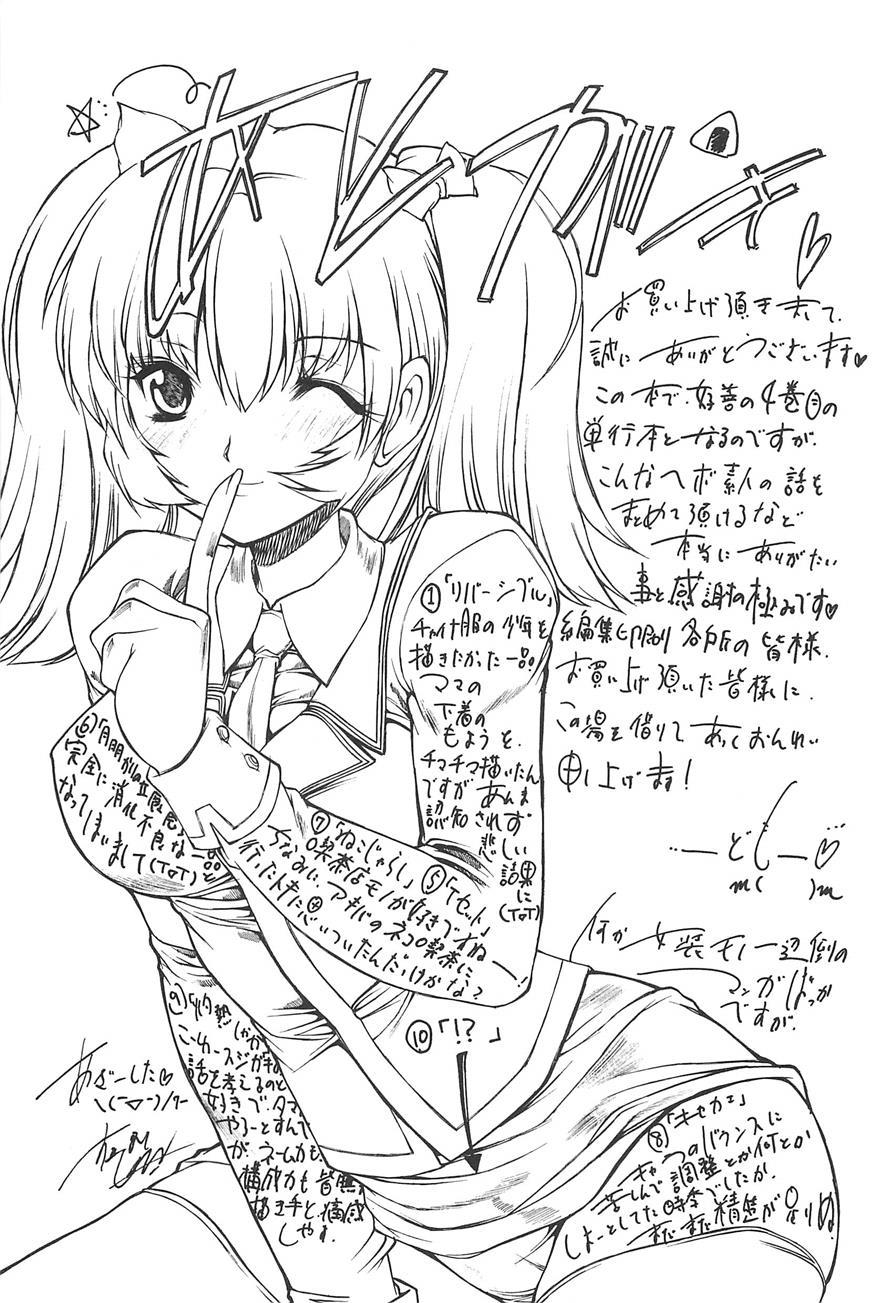 お買い上げ頂きまして、
誠にありがとうございます♥
この本で、好善の4巻目の
単行本となるのですが、
こんなヘボ素人の話を
まとめて頂けるなど
本当にありがたい
事と感謝の極みです♥
編集、印刷、各所の皆様、
お買い上げ頂いた皆様に、
この場を借りてあつくおんれい
申し上げます!
何か女装モノ一辺倒の
マンガばっか
ですが、
①「リバーシブル」
チャイナ服の少年を
描きたかった一品。
ママの
下着の
もようを、
チマチマ描いたん
ですがあんま
認知されず
悲しい
結果に
(T▽T)
⑤「Tセット」
⑥
完全に消化不良な一品と
なってしまいまして(T▽T)
⑦「ねこじゃらし」
喫茶店モノが好きですねー!
ちなみに、アキバのネコロ喫茶に
行ったトキに思いついたんだっけかな?
⑧「キセカエ」
キャラのバランスに
苦しんで調整とか何とか
しよーとしてた時季でしたが、
まだまだ精進が足りぬ。
話を考えるのと
好きで、
やろーとすんで
が、ネームカも
構成力も皆無
描き手と、痛感
しやす。
⑩「!?」
あざーした♥